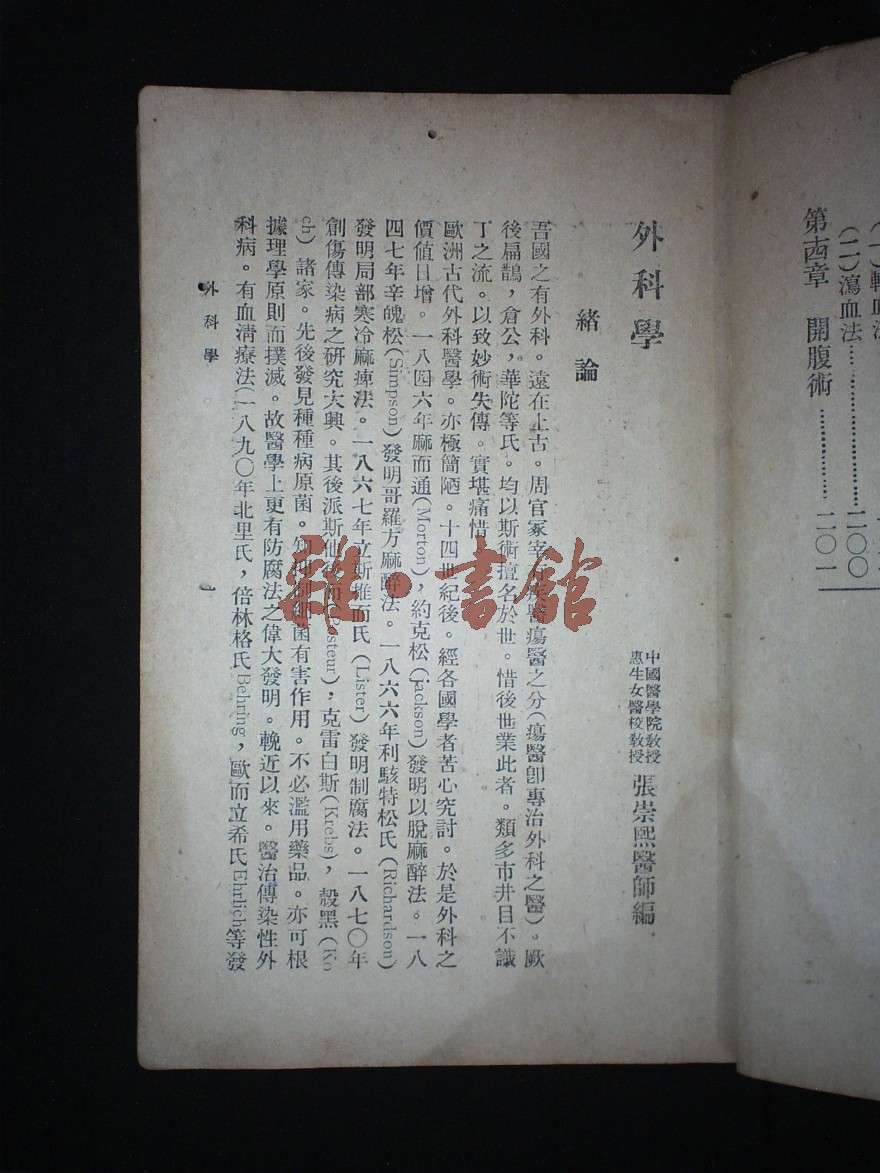 (二)瀉血法……………………二〇〇
第十四章 開腹術……………二〇一
外科學
中國醫學院教授
惠生女醫校教授
張崇熙醫師編
緒論
吾國之有外科。遠在上古。周官冢宰 醫瘍醫之分(瘍醫卽專治外科之醫)。厥
後扁鵲，倉公，華陀等氏。均以斯術擅名於世。惜後世業此者。類多市井目不識
丁之流。以致妙術失傳。實堪痛惜
歐洲古代外科醫學。亦極簡陋。十四世紀後。經各國學者苦心究討。於是外科之
價值日增。一八四六年麻而通(Morton)，約克松(jackson)發明以脫麻醉法。一八
四七年辛魄松(Simpson)發明哥羅方麻醉法。一八六六年利駭特松氏(Richardson)
發明局部寒冷麻痺法。一八六七年立斯推而氏(Lister)發明制腐法。一八七〇年
創傷傳染病之研究大興。其後派斯 (Pasteur)，克雷白斯(Krebs)，殼黑(Ko
ch)諸家。先後發見種種病原菌。 菌有害作用。不必濫用藥品。亦可根
據理學原則而撲滅。故醫學上更有防腐法之偉大發明。輓近以來。醫治傳染性外
科病。有血清療法(一八九〇年北里氏，倍林格氏Behring，歐而立希氏Ehrlich等發
外科學
一
雜·書館